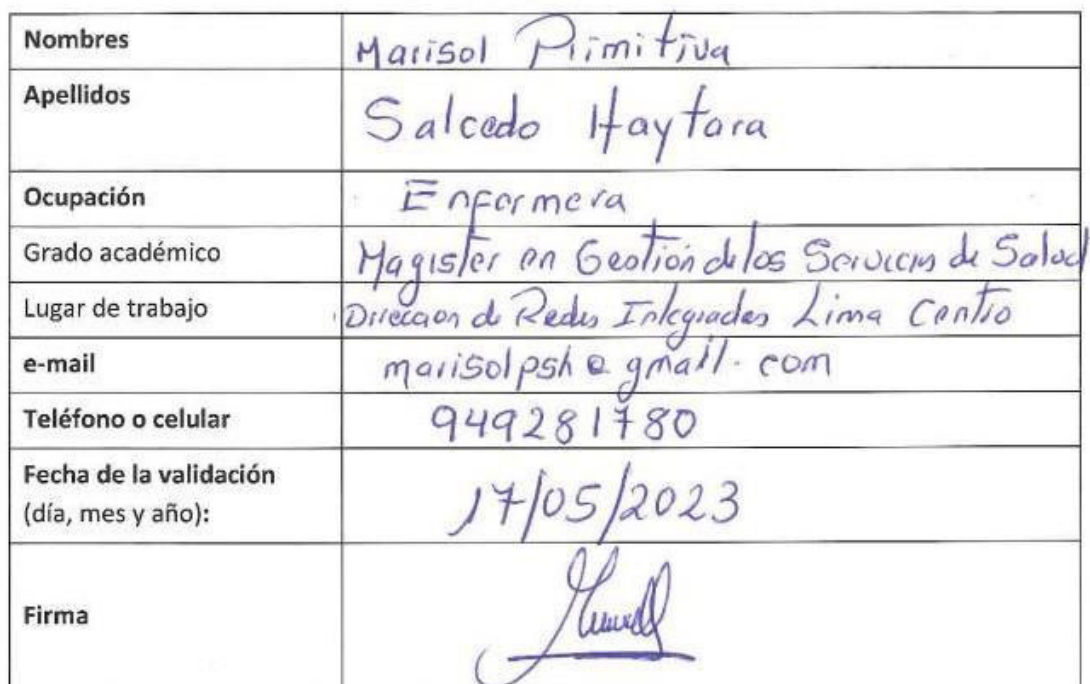 Nombres Marisol Primitiva
Apellidos Salcedo Haytara
Ocupación Enfermera
Grado académico Magister en Gestión de los Servicios de Salud
Lugar de trabajo Direccion de Redes Integradas Lima Centro
e-mail marisolpsh@gmail.com
Teléfono o celular 949281780
Fecha de la validación
(día, mes y año): 17/05/2023
Firma